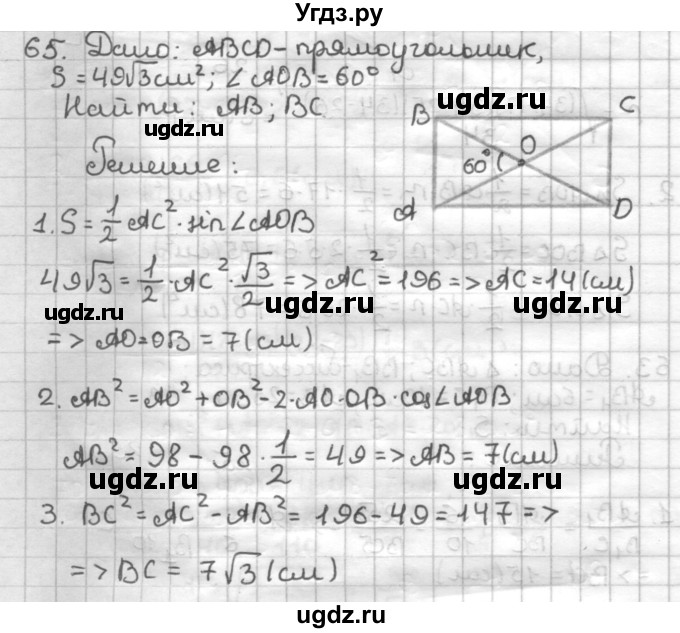 Угдз.ру
65. Дано: ABCD - прямоугольник,
S = 49√3 см²; ∠AOB = 60°
Найти: AB; BC.
ugdz.ru ugdz.ru
B C
O
60°
A D
Решение:
1. S = 1/2 AC² · sin∠AOB
49√3 = 1/2 · AC² · √3/2 => AC² = 196 => AC = 14 (см)
ugdz.ru ugdz.ru ugdz.ru
=> AO = OB = 7 (см)
2. AB² = AO² + OB² - 2 · AO · OB · cos∠AOB
AB² = 98 - 98 · 1/2 = 49 => AB = 7 (см)
ugdz.ru ugdz.ru
3. BC² = AC² - AB² = 196 - 49 = 147 =>
=> BC = 7√3 (см)
ugdz.ru ugdz.ru
ugdz.ru